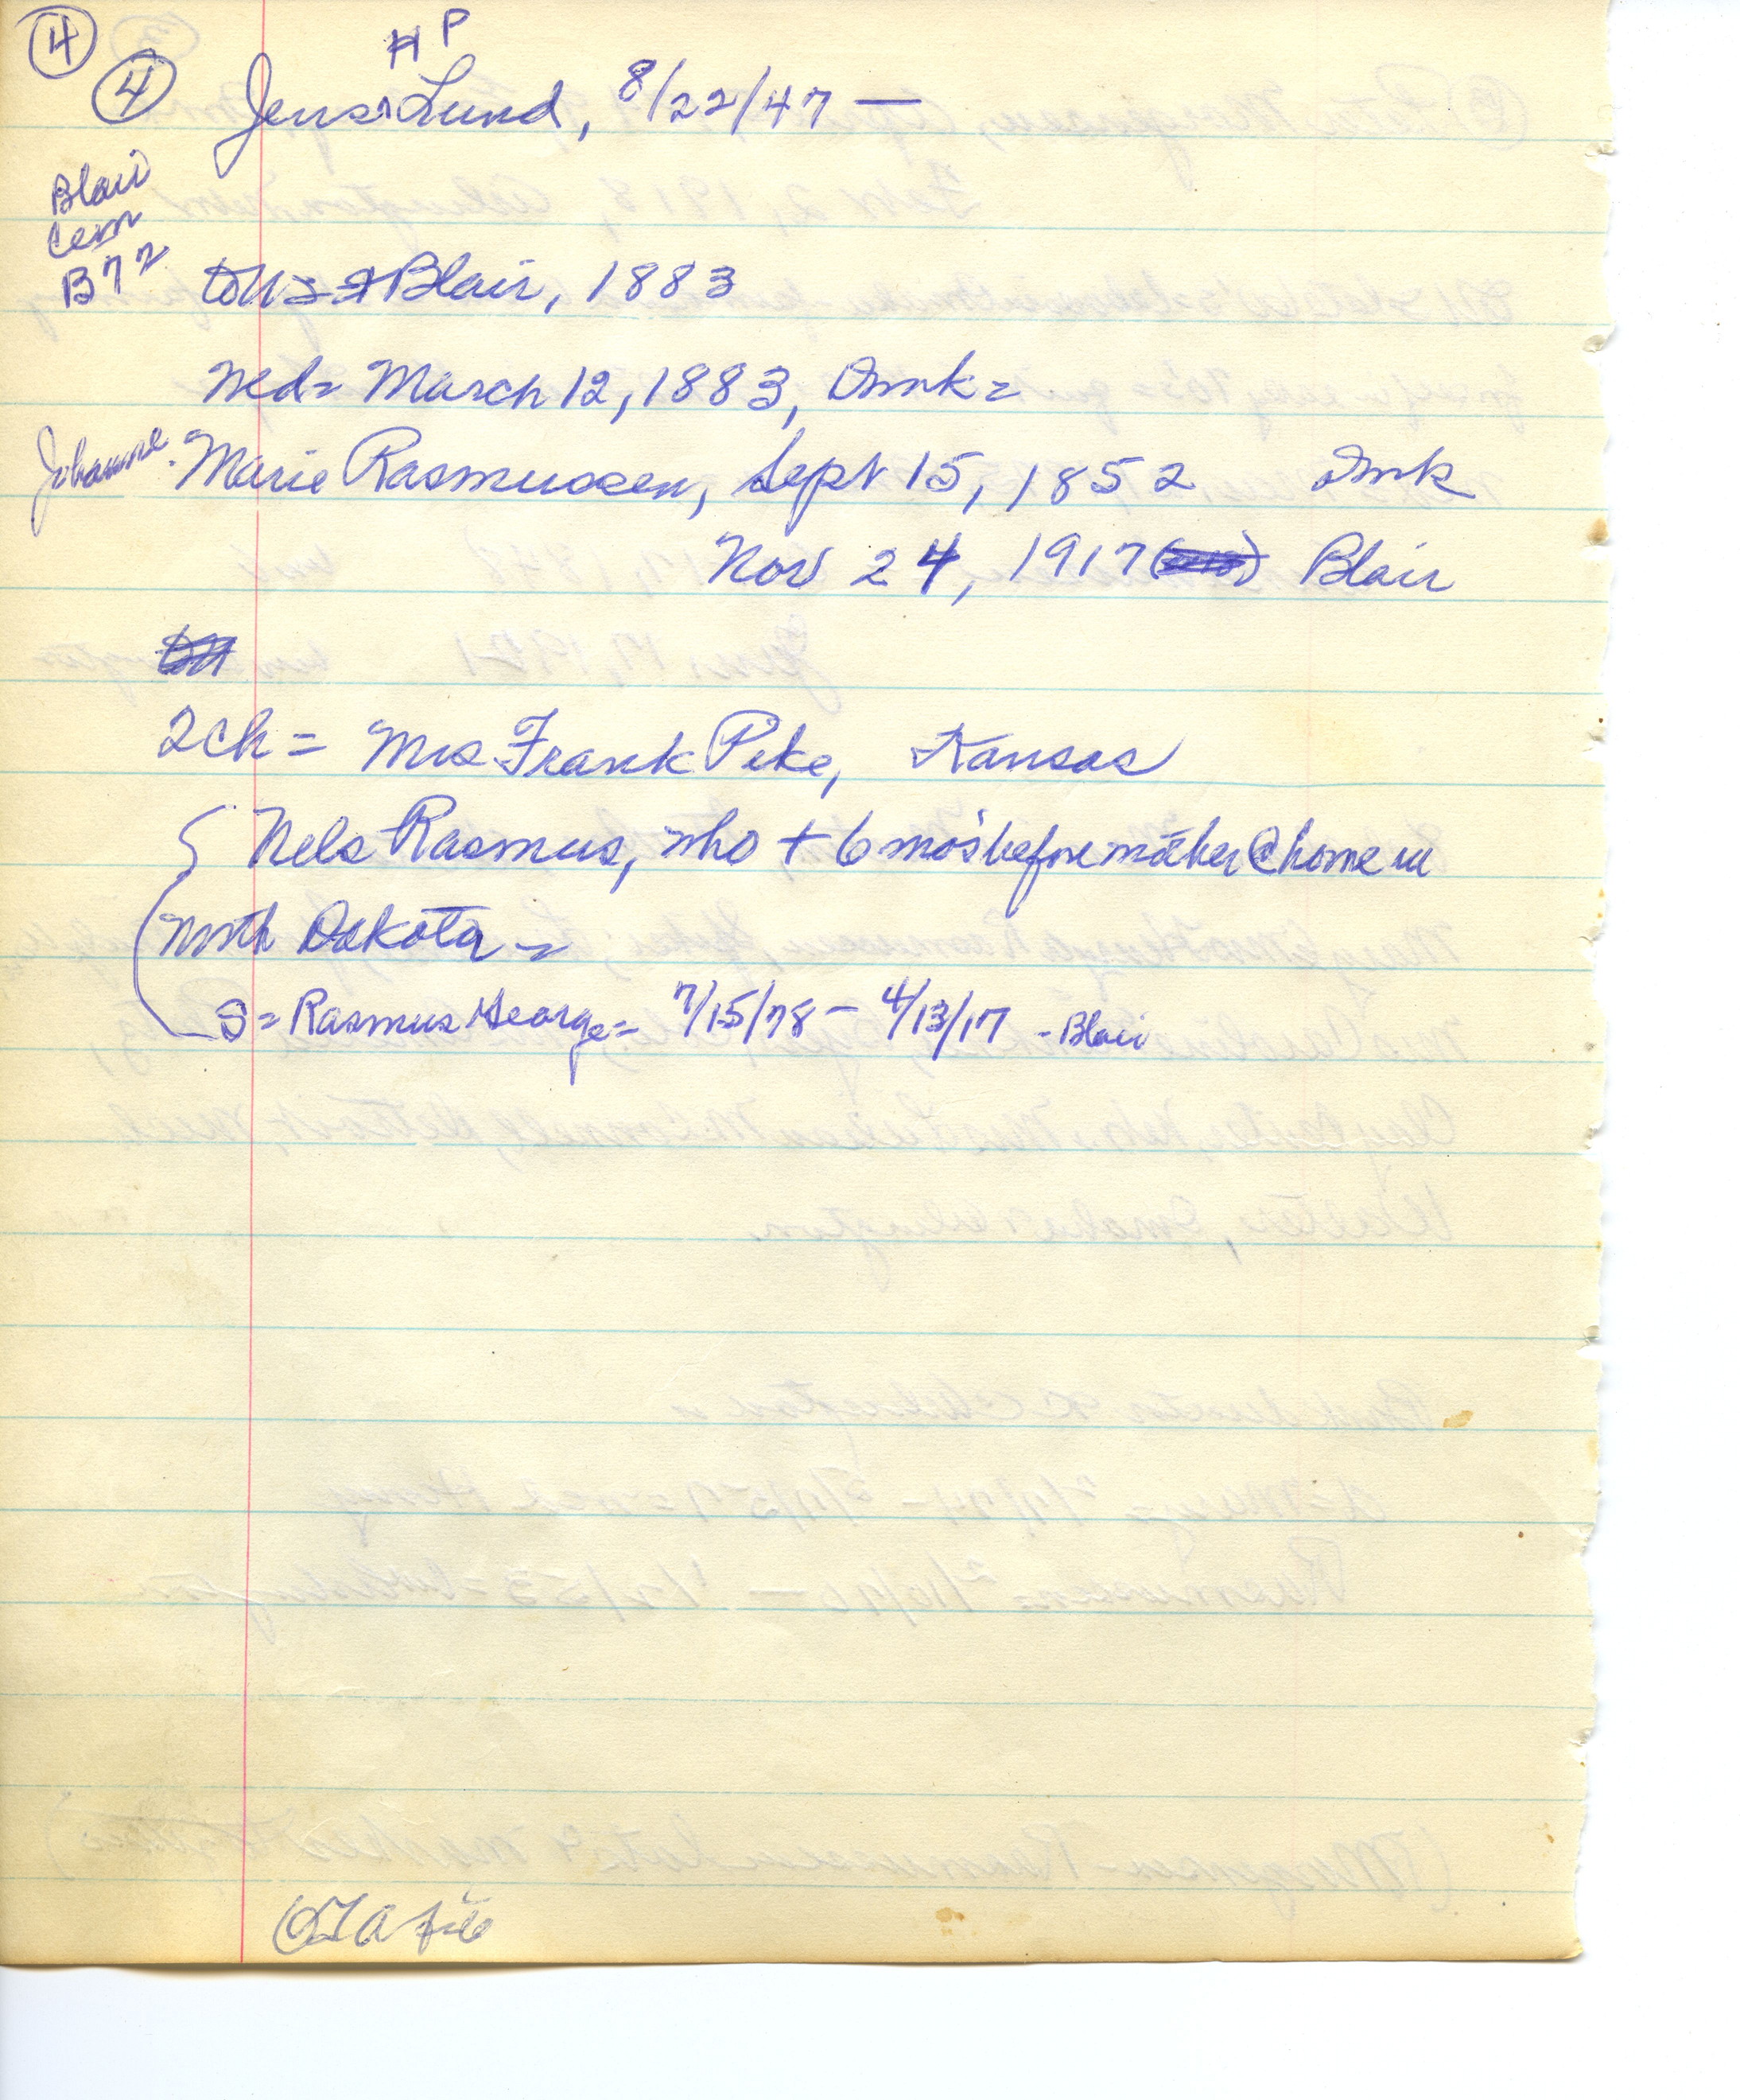 ④
④ Jens H P Lund, 8/22/47 —
Blair
Cem
B72
Blair, 1883
Med= March 12, 1883, Dmk=
Johanne Marie Rasmussen, Sept 15, 1852 Dmk
Nov 24, 1917 Blair
2 ch = Mrs Frank Pike, Kansas
Nels Rasmus, who + 6 mos before mother @ home in
North Dakota =
S= Rasmus George= 7/15/78 – 4/13/17 - Blair